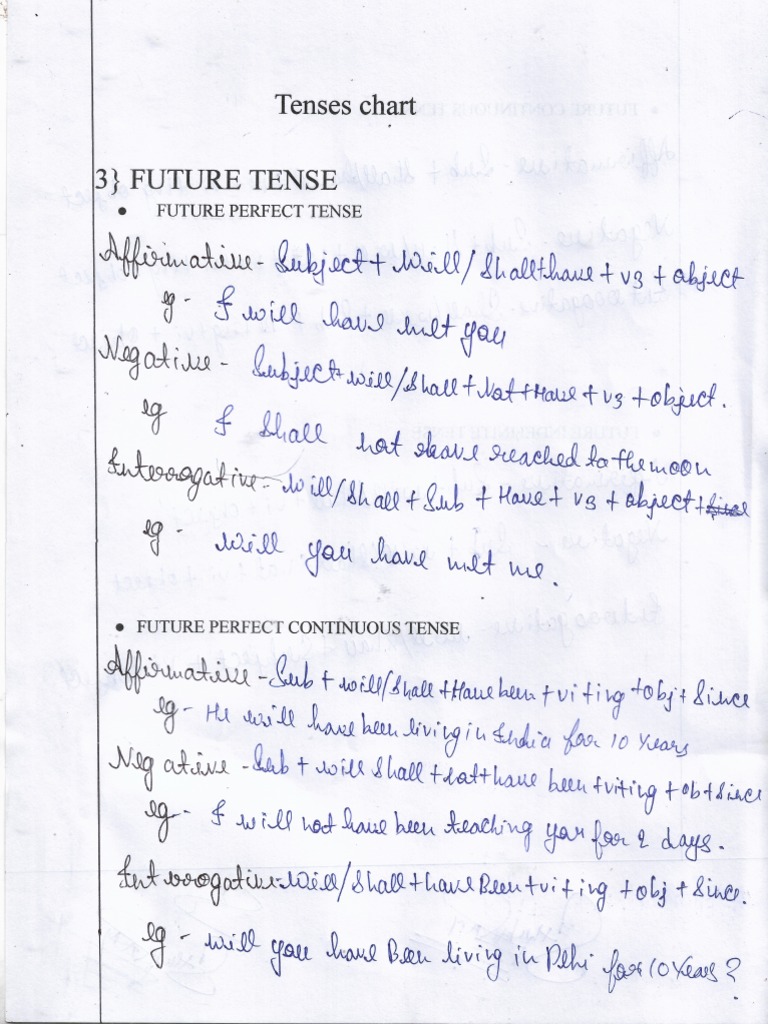 Tenses chart
3} FUTURE TENSE
• FUTURE PERFECT TENSE
Affirmative - Subject + Will/Shall+have + v3 + object
eg - I will have met you
Negative - Subject + will/Shall + Not + Have + v3 + object.
eg I Shall not have reached to the moon
Interrogative :- Will/Shall + Sub + Have + v3 + object +
eg - Will you have met me.
• FUTURE PERFECT CONTINUOUS TENSE
Affirmative - Sub + will/Shall + Have been + v1ting + obj + Since
eg - He will have been living in India for 10 Years
Negative - Sub + will Shall + not + have been + v1ting + ob + Since
eg - I will not have been teaching you for 2 days.
Interrogative :- Will/Shall + have Been + v1+ing + obj + Since.
eg - will you have Been living in Delhi for 10 Years?